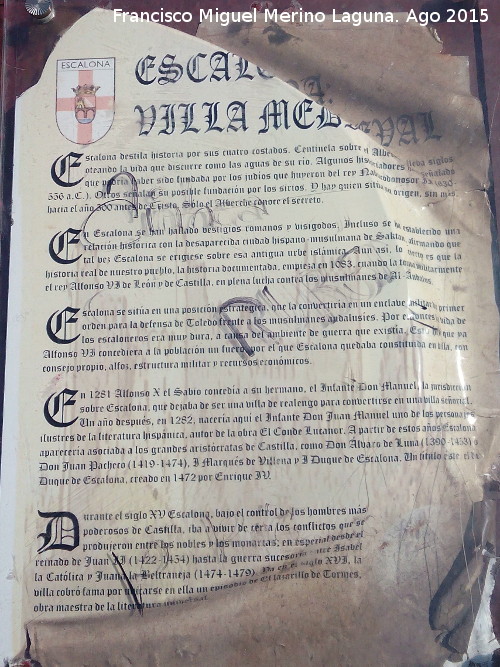 Francisco Miguel Merino Laguna. Ago 2015
ESCALONA
ESCALONA,
VILLA MEDIEVAL
Escalona destila historia por sus cuatro costados. Centinela sobre el Alberche
oteando la vida que discurre como las aguas de su río. Algunos historiadores
que podría haber sido fundada por los judíos que huyeron del rey Nabucodonosor
556 a.C.). Otros señalan su posible fundación por los sirios. Y hay quien sitúa su origen, sin más,
hacia el año 300 antes de Cristo. Sólo el Alberche conoce el secreto.
En Escalona se han hallado vestigios romanos y visigodos. Incluso se ha establecido una
relación histórica con la desaparecida ciudad hispano-musulmana de afirmando que
tal vez Escalona se erigiese sobre esa antigua urbe islámica. Aun así, lo cierto es que la
historia real de nuestro pueblo, la historia documentada, empieza en 1083, cuando la
el rey Alfonso VI de León y de Castilla, en plena lucha contra los musulmanes de Al-Andalus.
Escalona se sitúa en una posición estratégica, que la convertiría en un enclave militar de primer
orden para la defensa de Toledo frente a los musulmanes andalusíes. Por entonces la vida de
los escaloneros era muy dura, a causa del ambiente de guerra que existía. Es por lo que ya
Alfonso VI concediera a la población un fuero, por el que Escalona quedaba constituida en villa, con
consejo propio, alfoz, estructura militar y recursos económicos.
En 1281 Alfonso X el Sabio concedía a su hermano, el Infante Don Manuel, la jurisdicción
sobre Escalona, que dejaba de ser una villa de realengo para convertirse en una villa señorial.
Un año después, en 1282, nacería aquí el Infante Don Juan Manuel uno de los personajes
ilustres de la literatura hispánica, autor de la obra El Conde Lucanor. A partir de estos años Escalona
aparecería asociada a los grandes aristócratas de Castilla, como Don Álvaro de Luna (1390-1453) o
Don Juan Pacheco (1419-1474), I Marqués de Villena y I Duque de Escalona. Un título este, el de
Duque de Escalona, creado en 1472 por Enrique IV.
Durante el siglo XV Escalona, bajo el control de los hombres más
poderosos de Castilla, iba a vivir de cerca los conflictos que se
produjeron entre los nobles y los monarcas; en especial desde el
reinado de Juan II (1422-1454) hasta la guerra sucesoria entre Isabel
la Católica y Juana la Beltraneja (1474-1479). Ya en el siglo XVI, la
villa cobró fama por situarse en ella un episodio de El Lazarillo de Tormes,
obra maestra de la literatura universal.